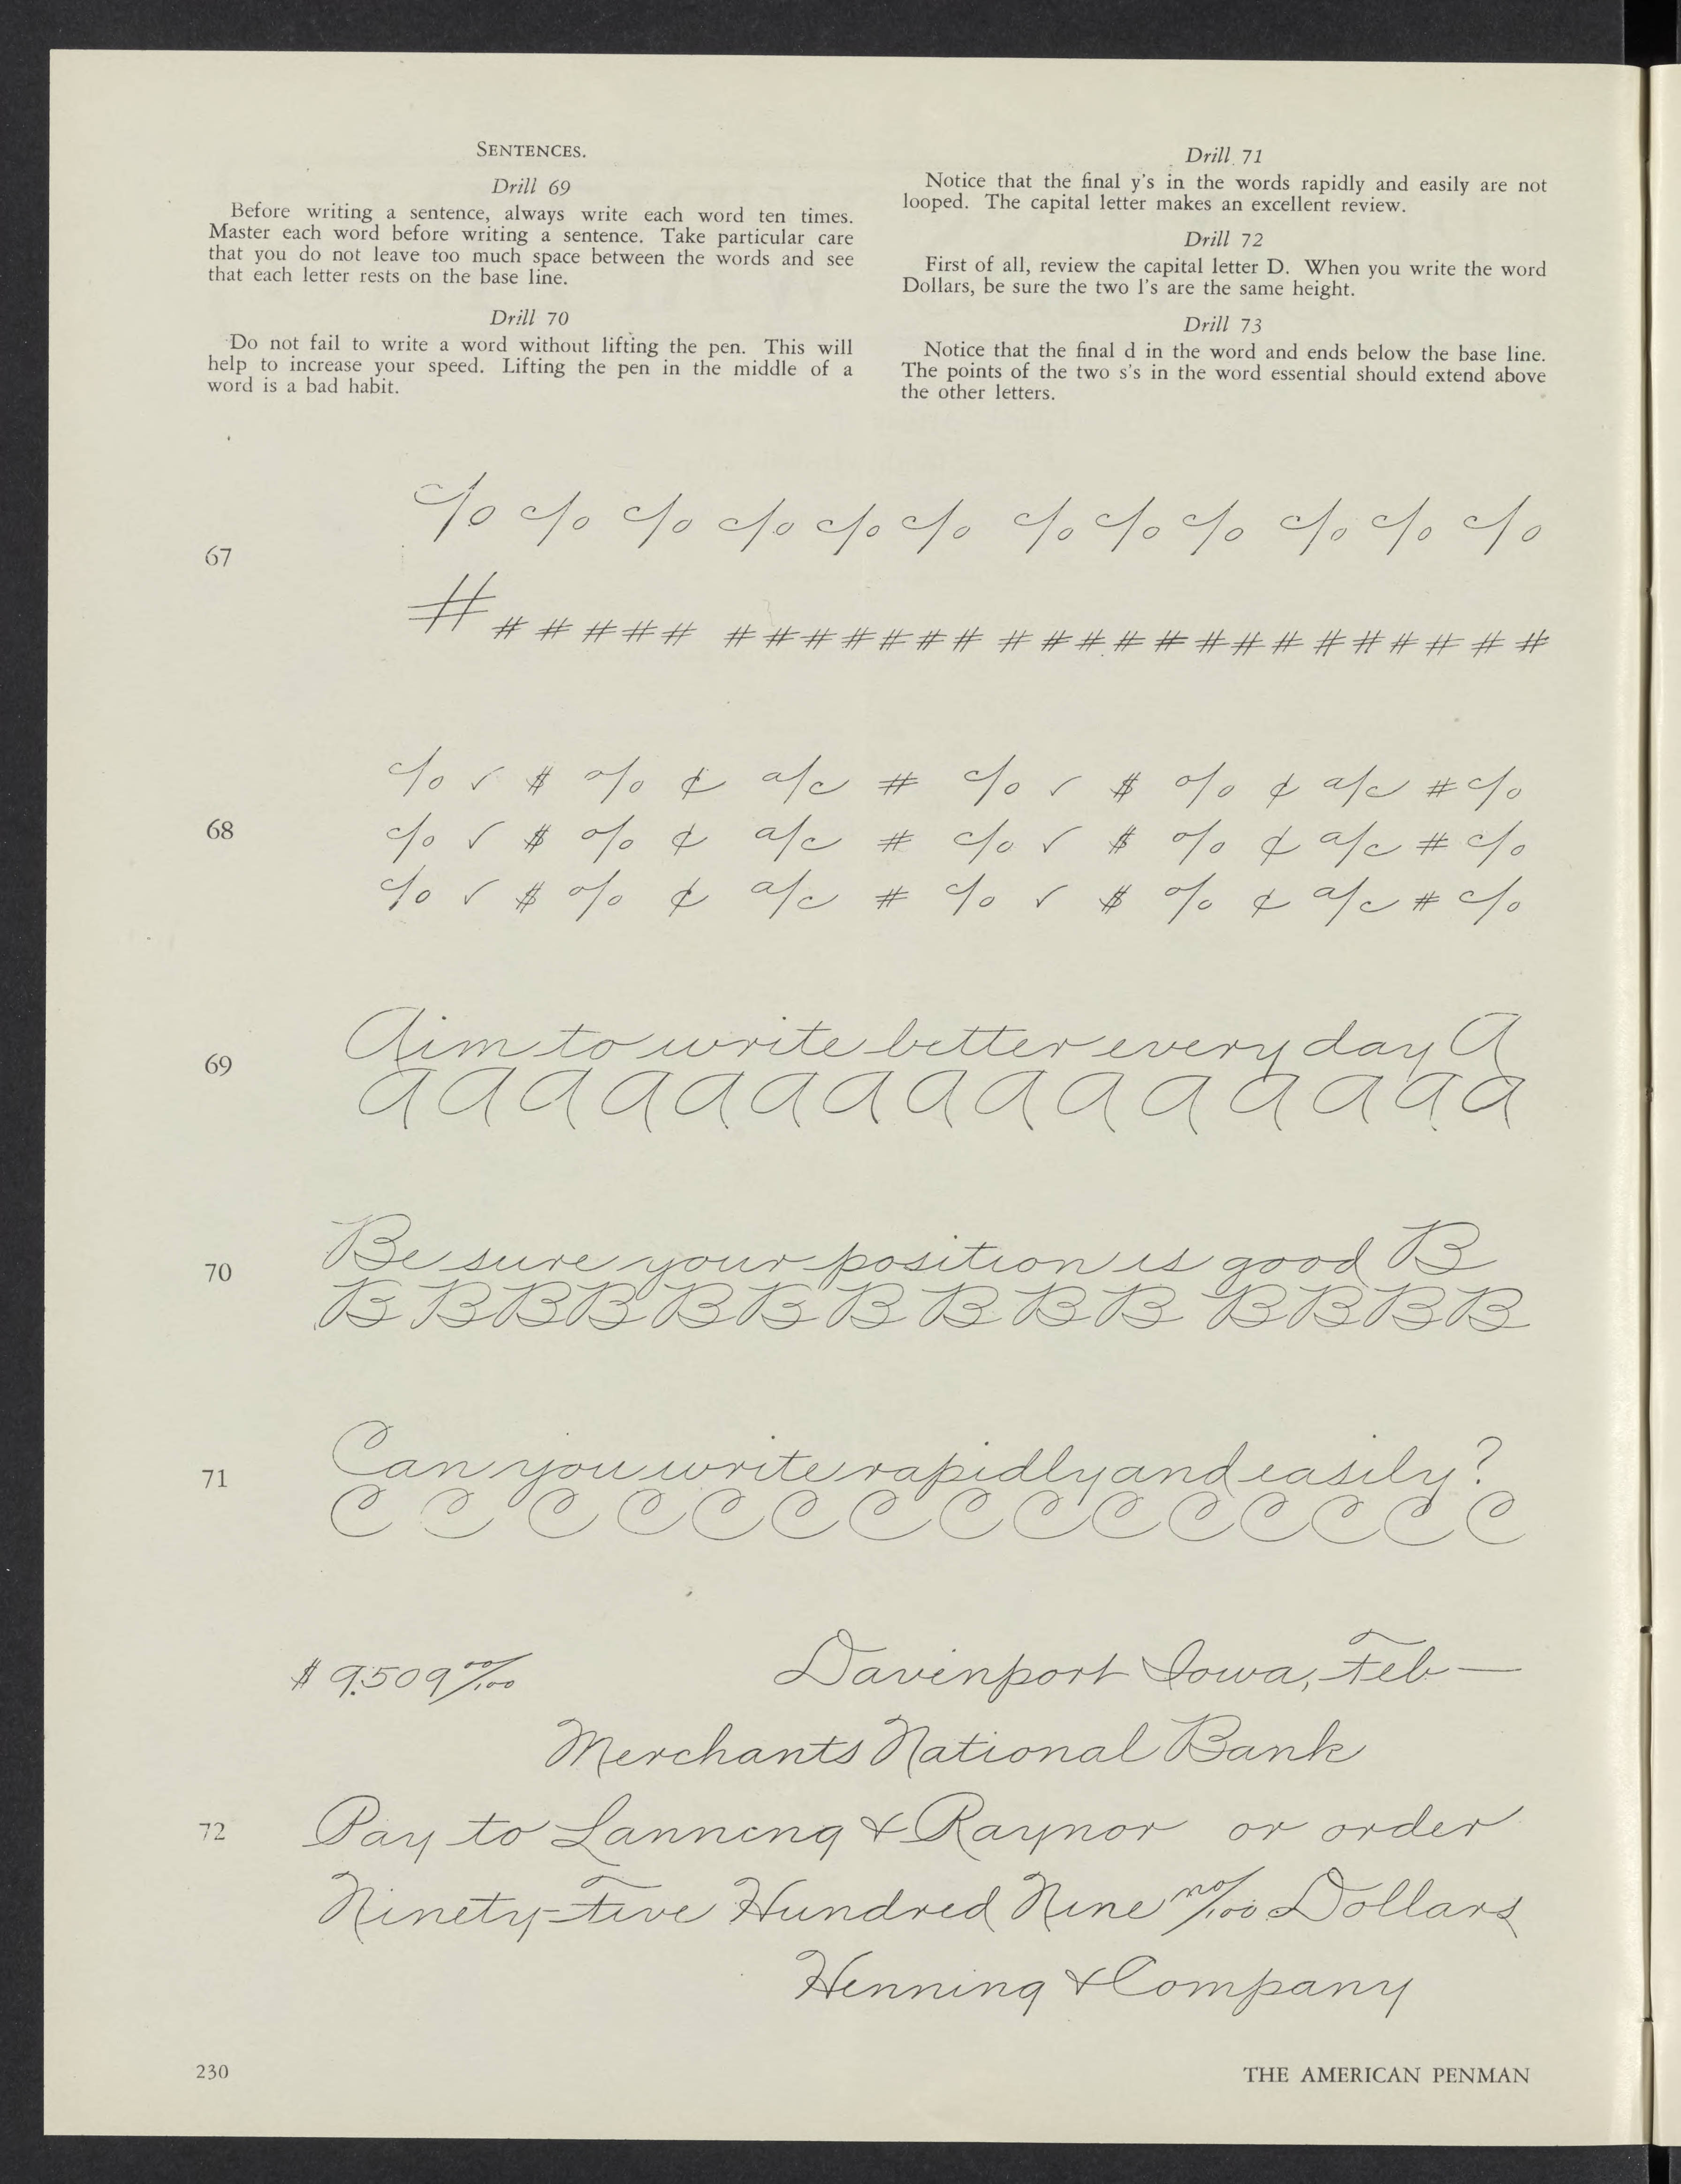 SENTENCES.
Drill 69
Before writing a sentence, always write each word ten times.
Master each word before writing a sentence. Take particular care
that you do not leave too much space between the words and see
that each letter rests on the base line.
Drill 70
Do not fail to write a word without lifting the pen. This will
help to increase your speed. Lifting the pen in the middle of a
word is a bad habit.
Drill 71
Notice that the final y's in the words rapidly and easily are not
looped. The capital letter makes an excellent review.
Drill 72
First of all, review the capital letter D. When you write the word
Dollars, be sure the two l's are the same height.
Drill 73
Notice that the final d in the word and ends below the base line.
The points of the two s's in the word essential should extend above
the other letters.
67
c/o c/o c/o c/o c/o c/o c/o c/o c/o c/o c/o c/o
# # # # # # # # # # # # # # # # # # # # # # # # # # #
68
c/o ✓ $ % ¢ a/c # c/o ✓ $ % ¢ a/c # c/o
c/o ✓ $ % ¢ a/c # c/o ✓ $ % ¢ a/c # c/o
c/o ✓ $ % ¢ a/c # c/o ✓ $ % ¢ a/c # c/o
69
Aim to write better every day A
A A A A A A A A A A A A A A A
70
Be sure your position is good B
B B B B B B B B B B B B B B
71
Can you write rapidly and easily?
C C C C C C C C C C C C C C C
72
$ 9,509 00/100 Davenport Iowa, Feb —
Merchants National Bank
Pay to Lanning & Raynor or order
Ninety-Five Hundred Nine no/100 Dollars
Henning & Company
230
THE AMERICAN PENMAN